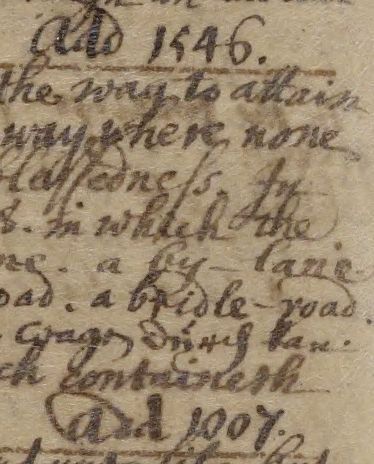 Add 1546.
the way to attain
way where none
blassedness. In
8. in which the
ne. a by-lane
oad. a bridle-road.
durch
ch containeth
Add 1007.